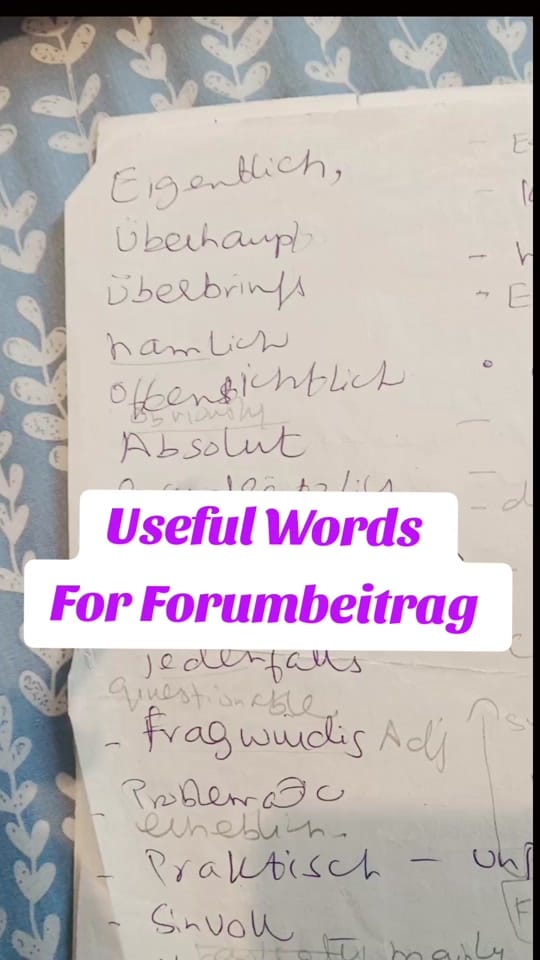 Eigentlich,
Überhaupt
Überbrings
nämlich
offensichtlich
obviously
Absolut
Useful Words
For Forumbeitrag
jedenfalls
questionable
- fragwürdig Adj
- Problematic
erheblich -
- Praktisch -
- Sinvoll